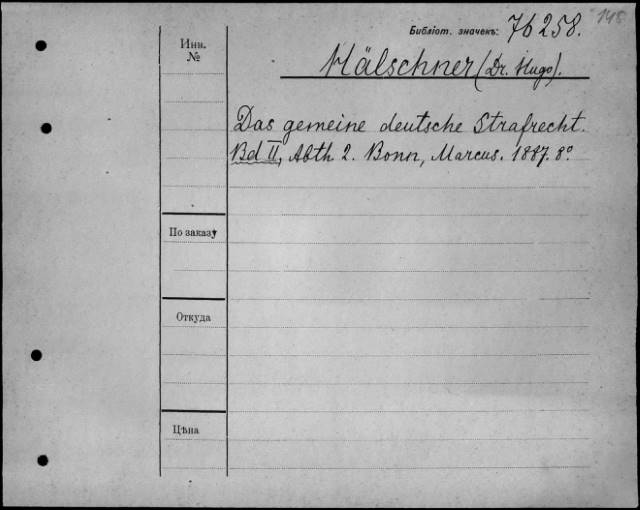 148
Библіот. значекъ: 76258.
Инв.
№
Hälschner (Dr. Hugo).
Das gemeine deutsche Strafrecht.
Bd II, Abth 2. Bonn, Marcus. 1887. 8°
По заказу
Откуда
Цѣна